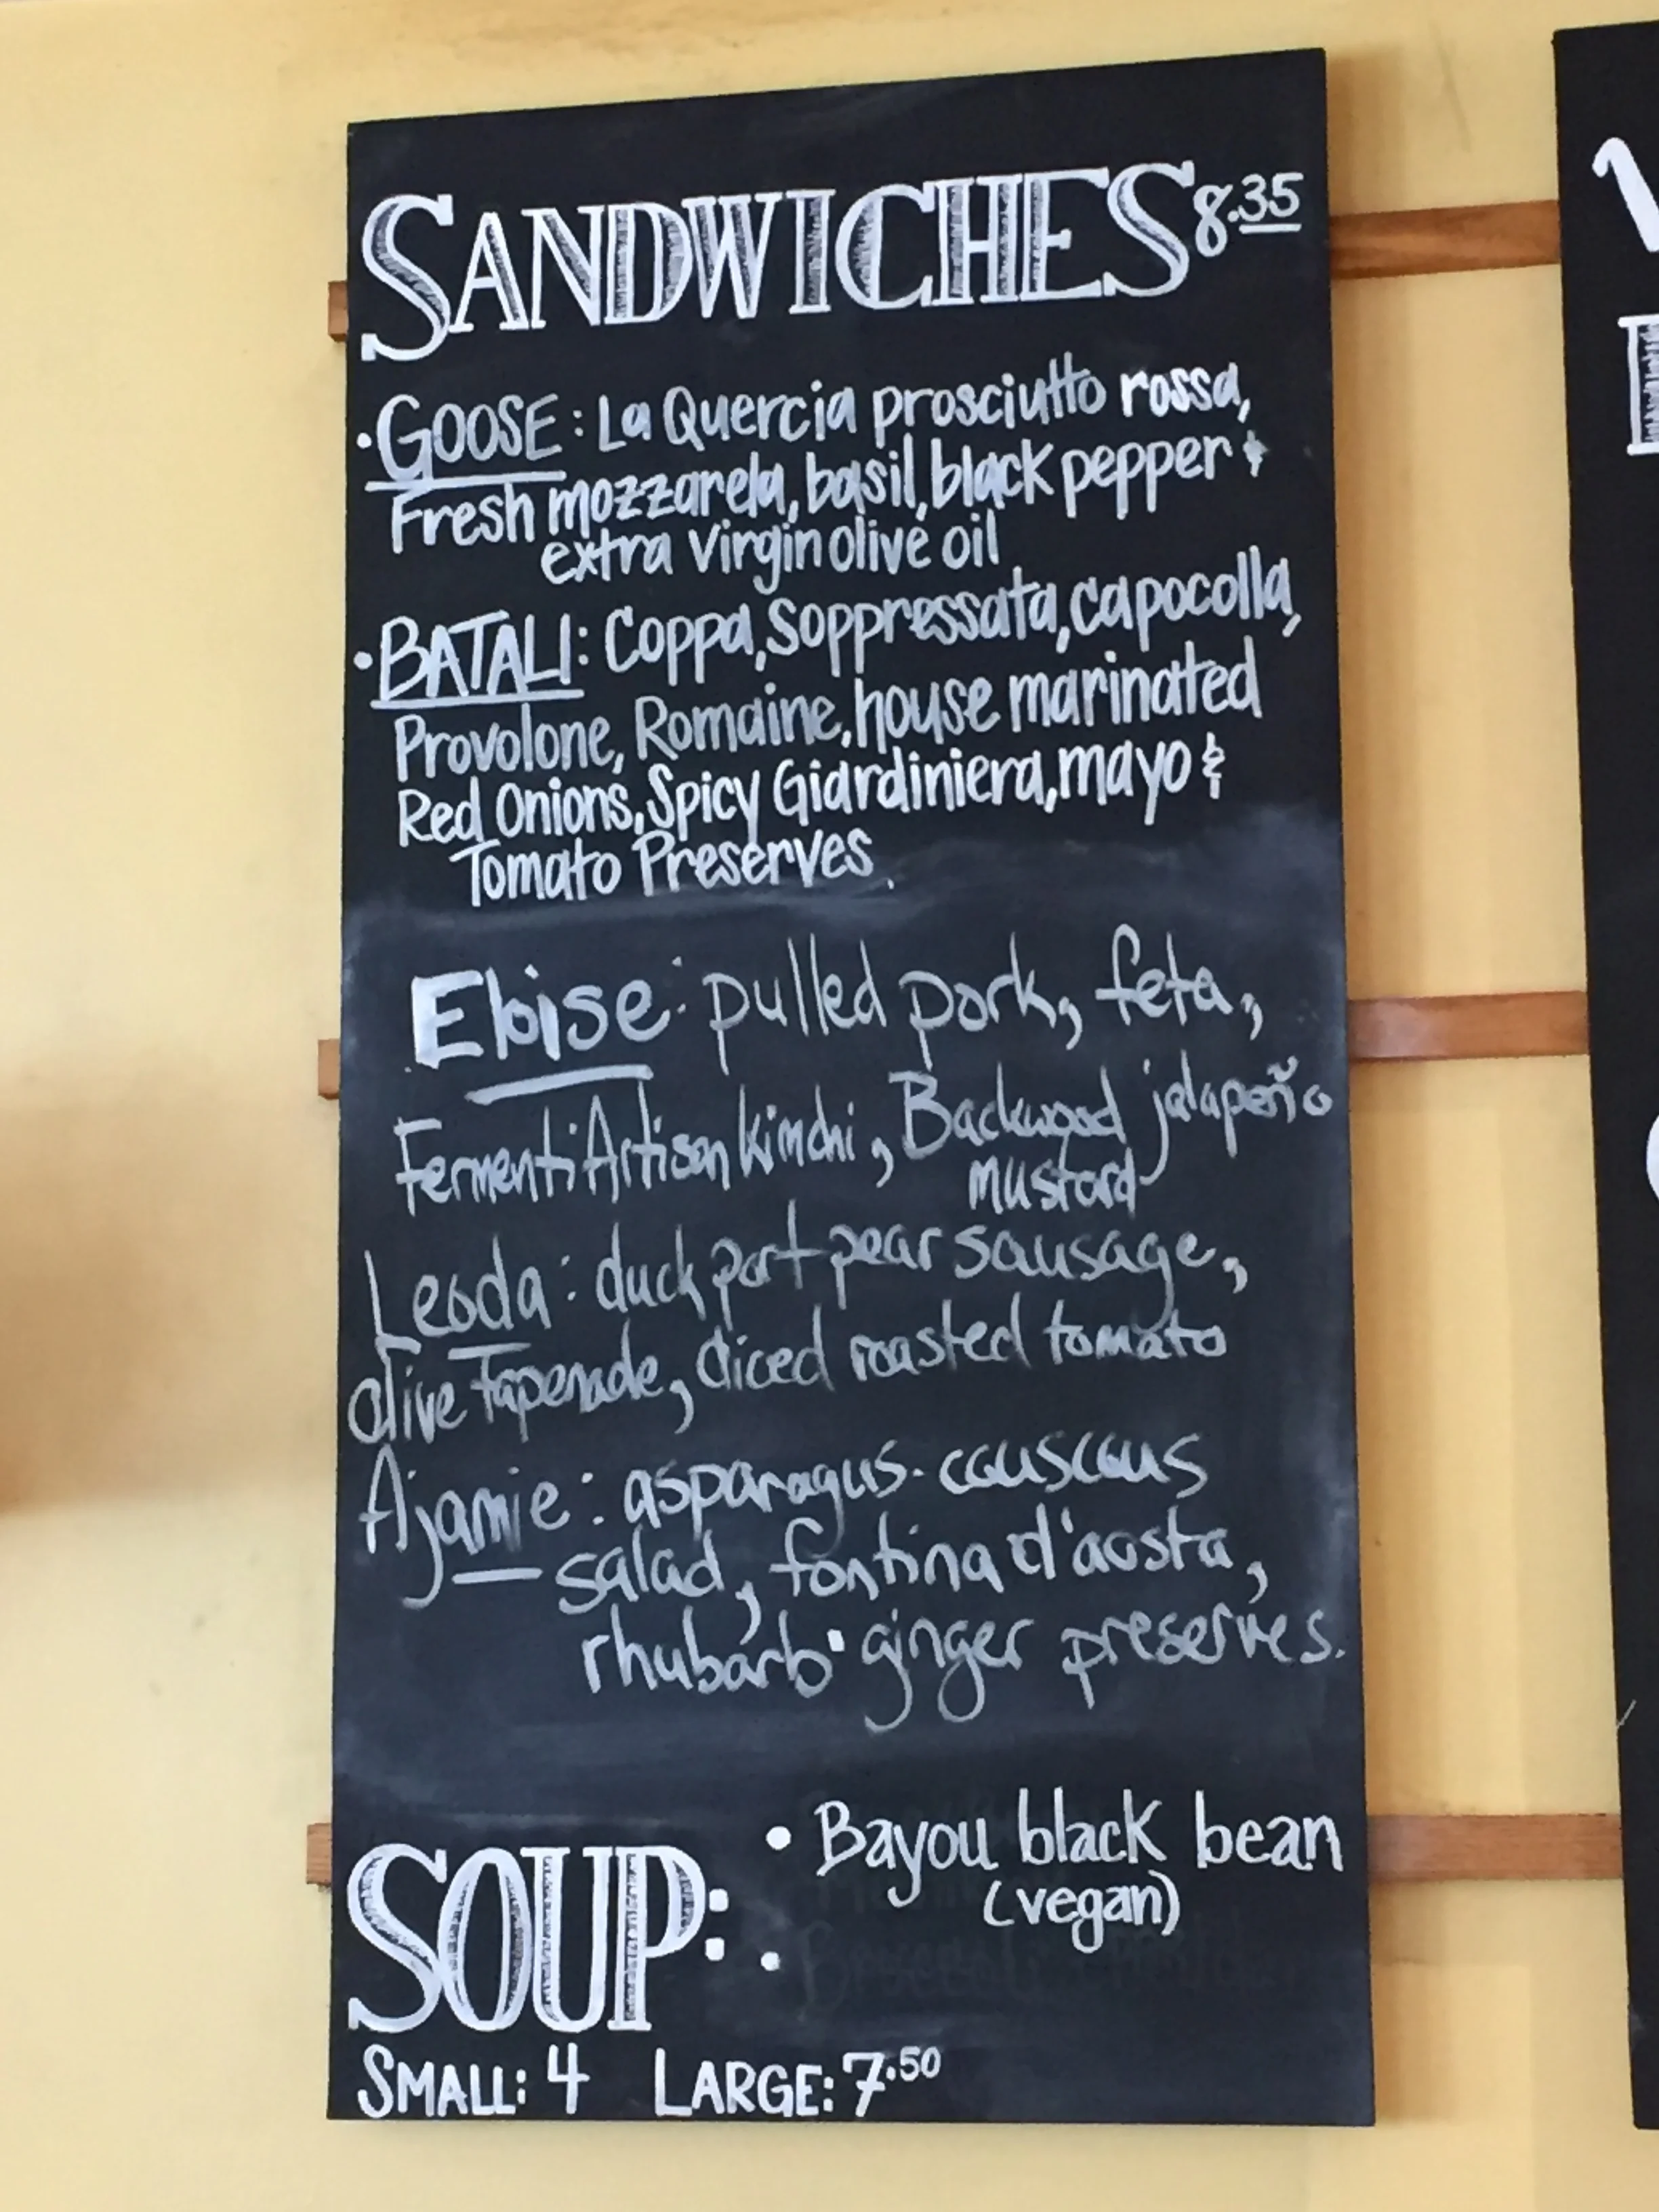 SANDWICHES 8.35
• GOOSE: La Quercia prosciutto rossa,
Fresh mozzarela, basil, black pepper &
extra virgin olive oil
• BATALI: Coppa, Soppressata, capocolla,
Provolone, Romaine, house marinated
Red Onions, Spicy Giardiniera, mayo &
Tomato Preserves.
Eloise: pulled pork, feta,
Fermenti Artisan Kimchi, Backwood jalapeño
mustard
Leoda: duck port pear sausage,
olive Tapenade, diced roasted tomato
Ajamie: asparagus-couscous
salad, fontina d'aosta,
rhubarb·ginger preserves.
SOUP: • Bayou black bean
(vegan)
•
SMALL: 4 LARGE: 7.50